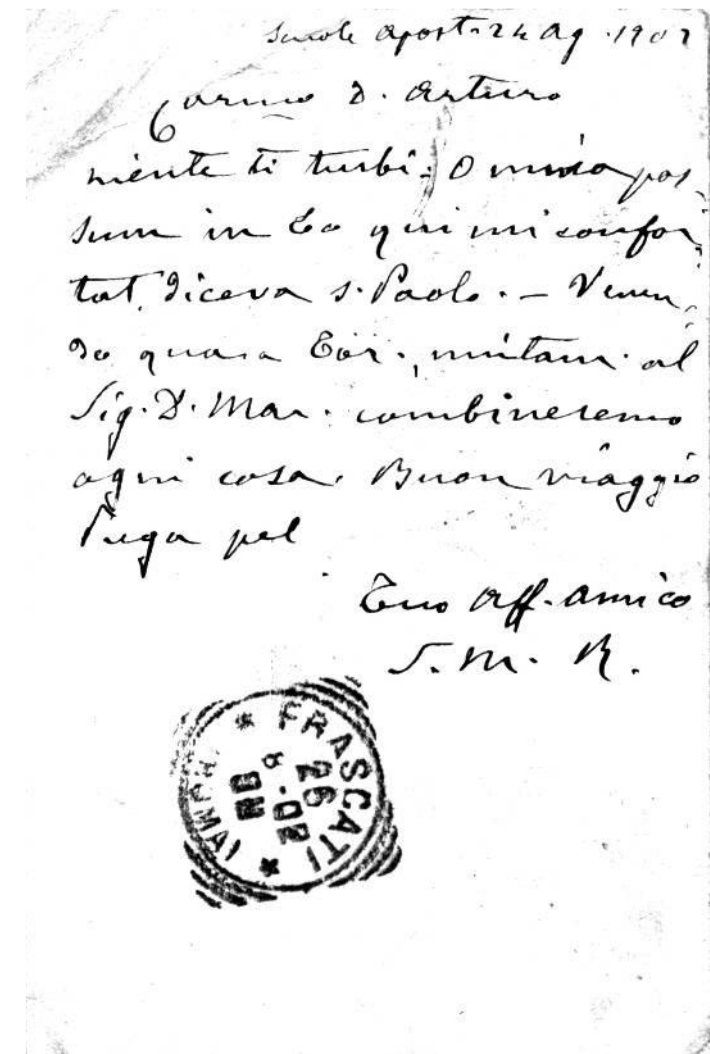 Scuole Apost. 24 Ag. 1902
Carmo D. Arturo
niente ti turbi: Omnia pos-
sum in Eo qui mi confor-
tat, diceva s. Paolo. - Venen-
do qua a
al
Sig. D. Mar. combineremo
ogni cosa. Buon viaggio
Prega pel
Tuo Aff. amico
S. M. R.
* FRASCATI *
26
8 - 02
(ROMA)